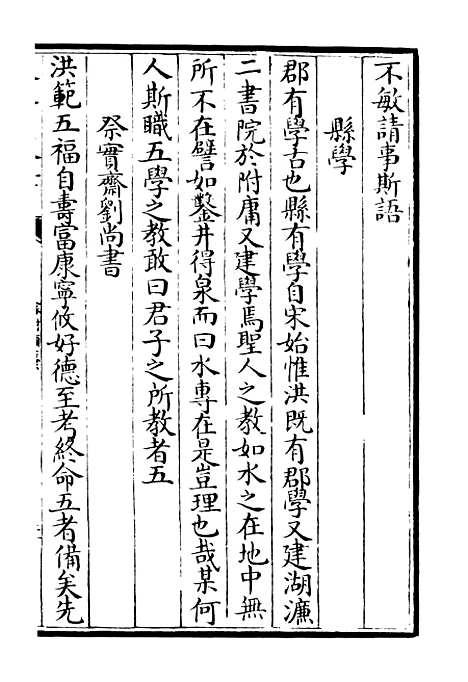 不敏請事斯語
縣學
郡有學古也縣有學自宋始惟洪既有郡學又建湖濂
二書院於附庸又建學焉聖人之教如水之在地中無
所不在譬如鑿井得泉而曰水專在是豈理也哉某何
人斯職五學之教敢曰君子之所教者五
祭實齋劉尚書
洪範五福自壽富康寧攸好德至考終命五者備矣先